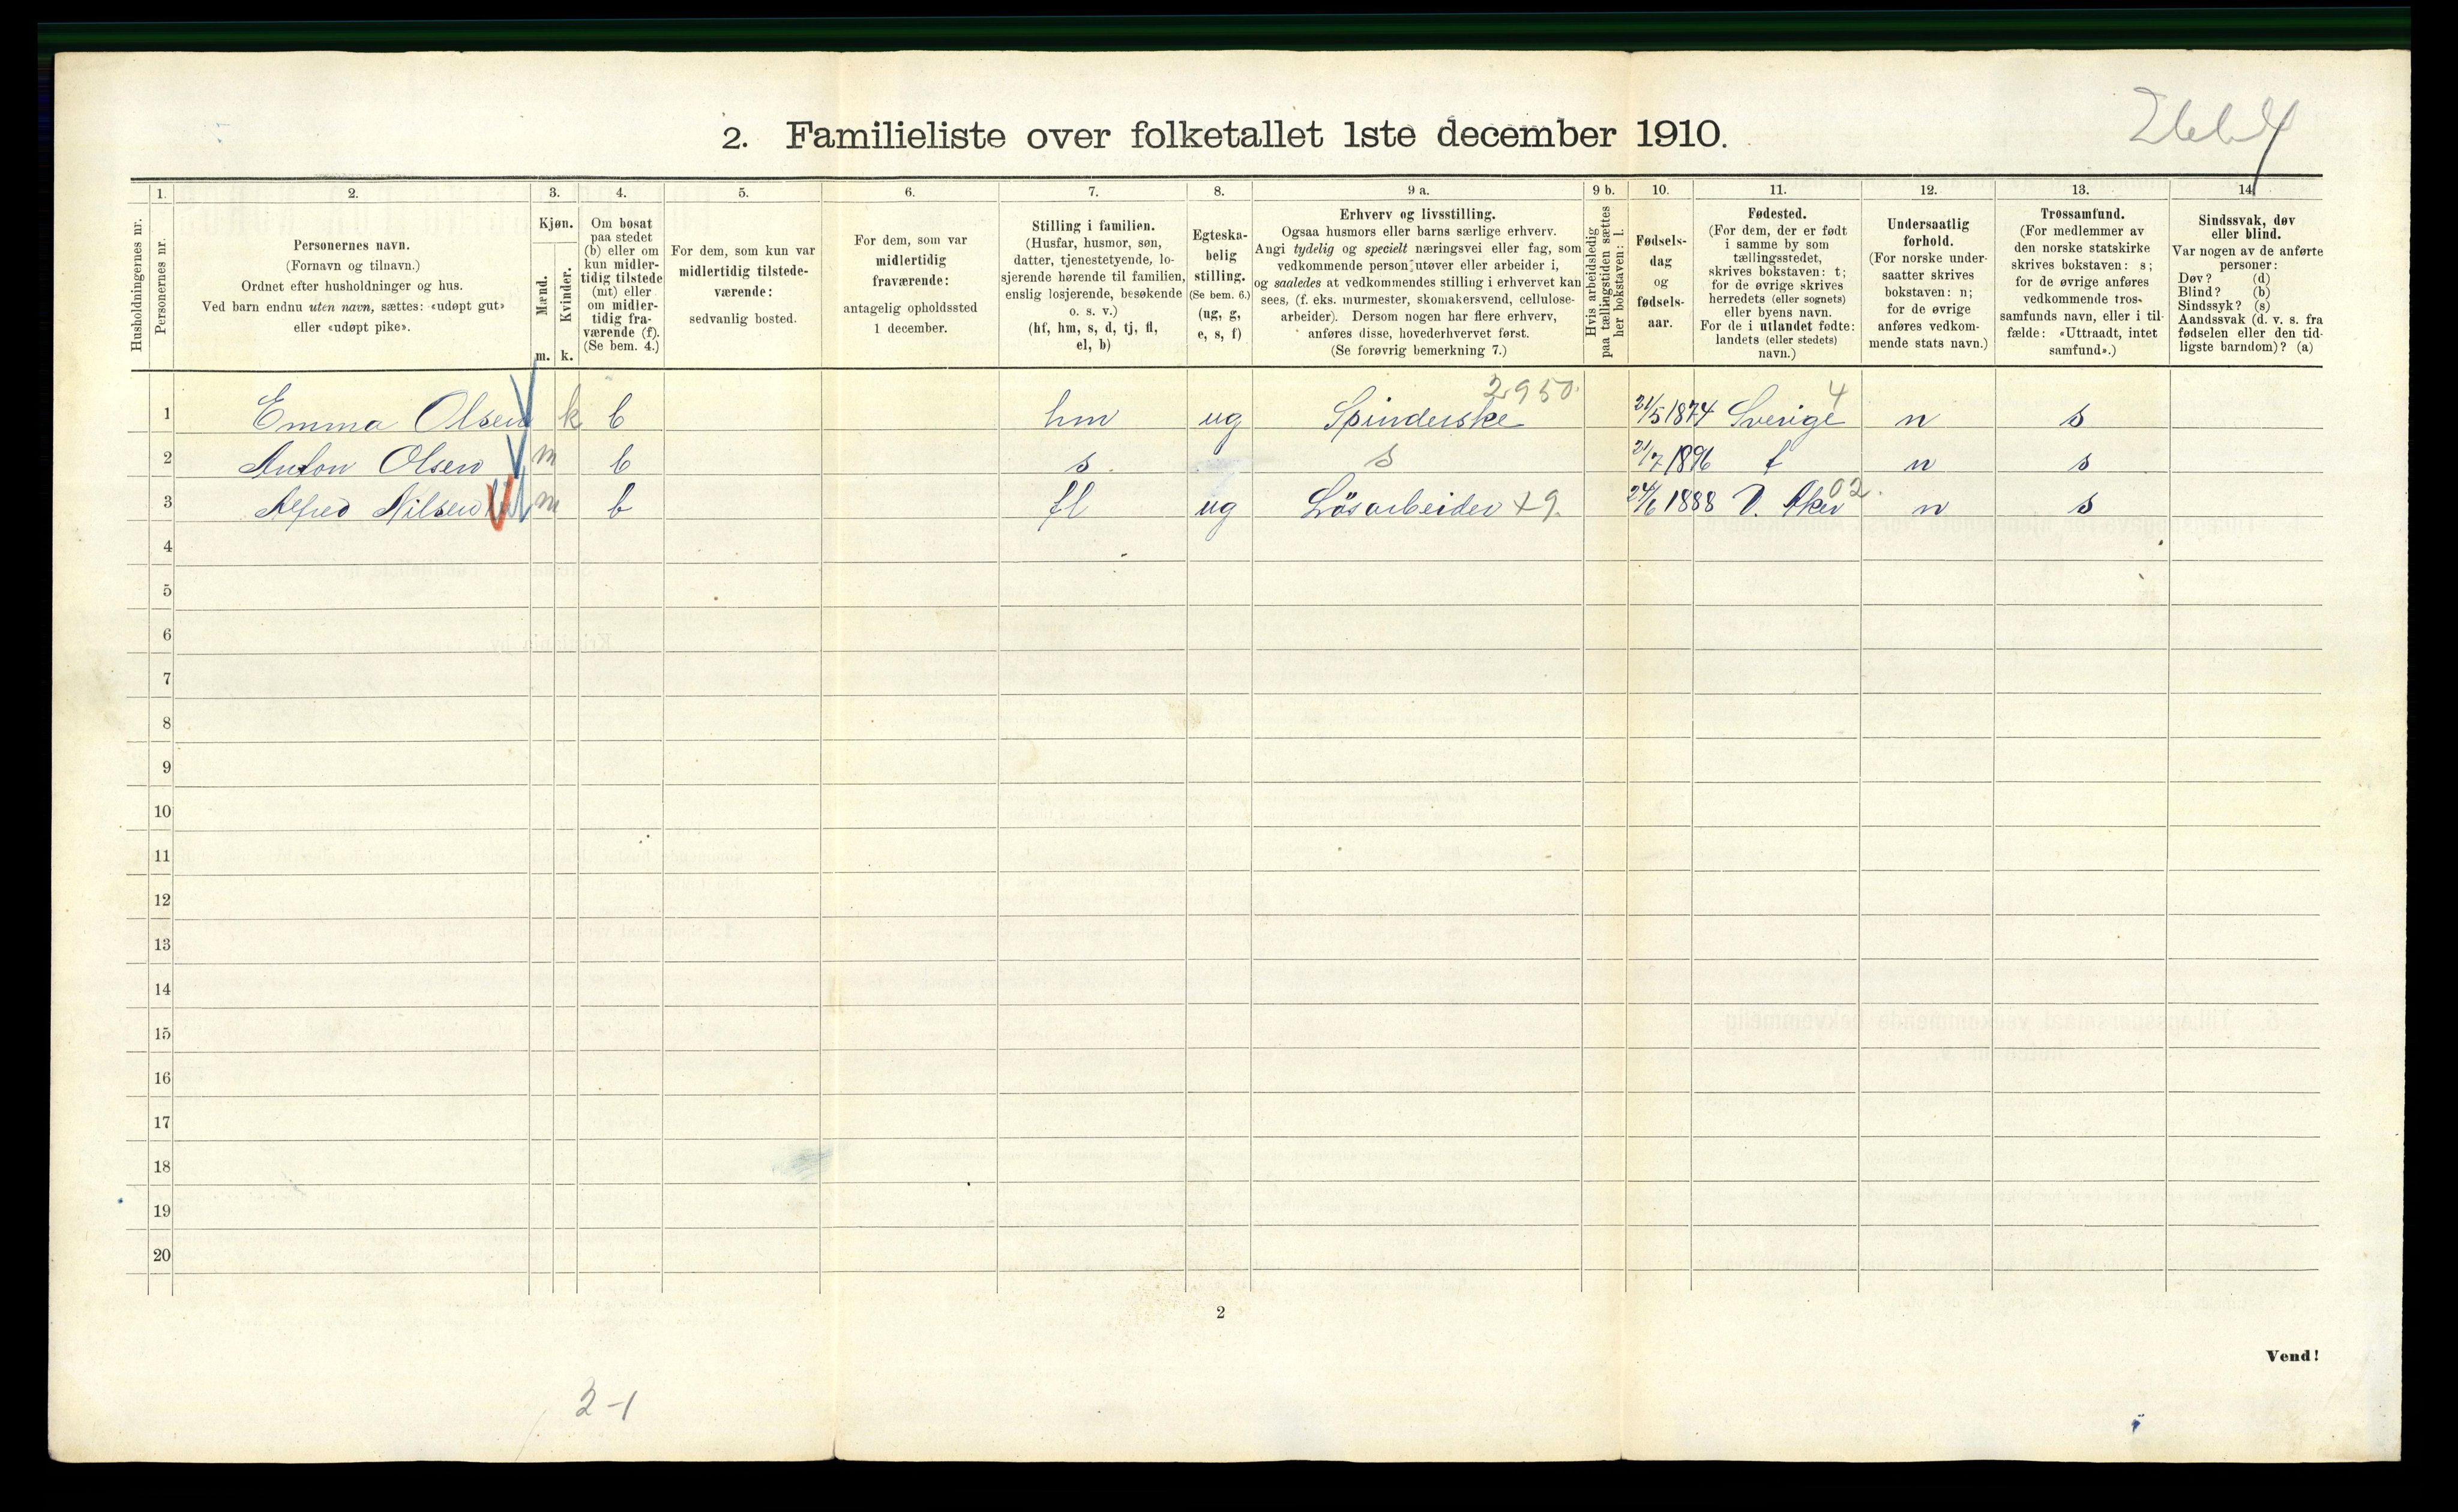 2. Familieliste over folketallet 1ste december 1910.
1. 2. 3. 4. 5. 6. 7. 8. 9 a. 9 b. 10. 11. 12. 13. 14.
Husholdningernes nr.
Personernes nr.
Personernes navn.
(Fornavn og tilnavn.)
Ordnet efter husholdninger og hus.
Ved barn endnu uten navn, sættes: «udøpt gut»
eller «udøpt pike».
Kjøn.
Mænd.
m.
Kvinder.
k.
Om bosat
paa stedet
(b) eller om
kun midler-
tidig tilstede
(mt) eller
om midler-
tidig fra-
værende (f).
(Se bem. 4.)
For dem, som kun var
midlertidig tilstede-
værende:
sedvanlig bosted.
For dem, som var
midlertidig
fraværende:
antagelig opholdssted
1 december.
Stilling i familien.
(Husfar, husmor, søn,
datter, tjenestetyende, lo-
sjerende hørende til familien,
enslig losjerende, besøkende
o. s. v.)
(hf, hm, s, d, tj, fl,
el, b)
Egteska-
belig
stilling.
(Se bem. 6.)
(ug, g,
e, s, f)
Erhverv og livsstilling.
Ogsaa husmors eller barns særlige erhverv.
Angi tydelig og specielt næringsvei eller fag, som
vedkommende person utøver eller arbeider i,
og saaledes at vedkommendes stilling i erhvervet kan
sees, (f. eks. murmester, skomakersvend, cellulose-
arbeider). Dersom nogen har flere erhverv,
anføres disse, hovederhvervet først.
(Se forøvrig bemerkning 7.)
Hvis arbeidsledig
paa tællingstiden sættes
her bokstaven: l.
Fødsels-
dag
og
fødsels-
aar.
Fødested.
(For dem, der er født
i samme by som
tællingsstedet,
skrives bokstaven: t;
for de øvrige skrives
herredets (eller sognets)
eller byens navn.
For de i utlandet fødte:
landets (eller stedets)
navn.)
Undersaatlig
forhold.
(For norske under-
saatter skrives
bokstaven: n;
for de øvrige
anføres vedkom-
mende stats navn.)
Trossamfund.
(For medlemmer av
den norske statskirke
skrives bokstaven: s;
for de øvrige anføres
vedkommende tros-
samfunds navn, eller i til-
fælde: «Uttraadt, intet
samfund».)
Sindssvak, døv
eller blind.
Var nogen av de anførte
personer:
Døv? (d)
Blind? (b)
Sindssyk? (s)
Aandssvak (d. v. s. fra
fødselen eller den tid-
ligste barndom)? (a)
2950. 4
1 Emma Olsen k b hm ug Spinderske 21/5 1874 Sverige n s
2 Anton Olsen m b s s 21/7 1896 t n s
02.
3 Alfred Nilsen m b fl ug Løsarbeider +9. 24/6 1888 V. Aker n s
4
5
6
7
8
9
10
11
12
13
14
15
16
17
18
19
20
2
Vend!
2-1